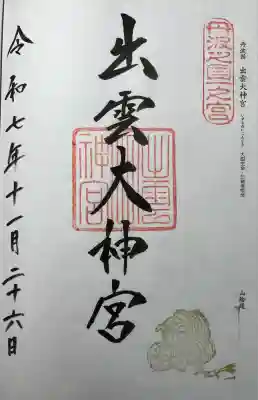 丹波國一之宮
丹波國 出雲大神宮
出雲大神宮
出雲
神宮
令和七年十一月二十六日